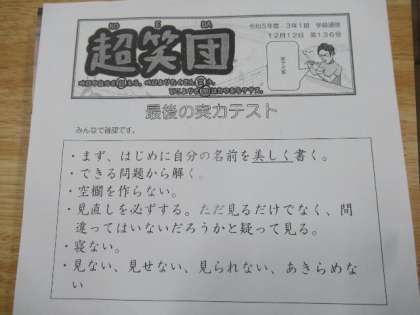 超笑団
令和5年度 3年1組 学級通信
12月12日 第136号
最後の実力テスト
みんなで確認です。
・まず、はじめに自分の名前を美しく書く。
・できる問題から解く。
・空欄を作らない。
・見直しを必ずする。ただ見るだけでなく、間
違ってはいないだろうかと疑って見る。
・寝ない。
・見ない、見せない、見られない、あきらめな
い